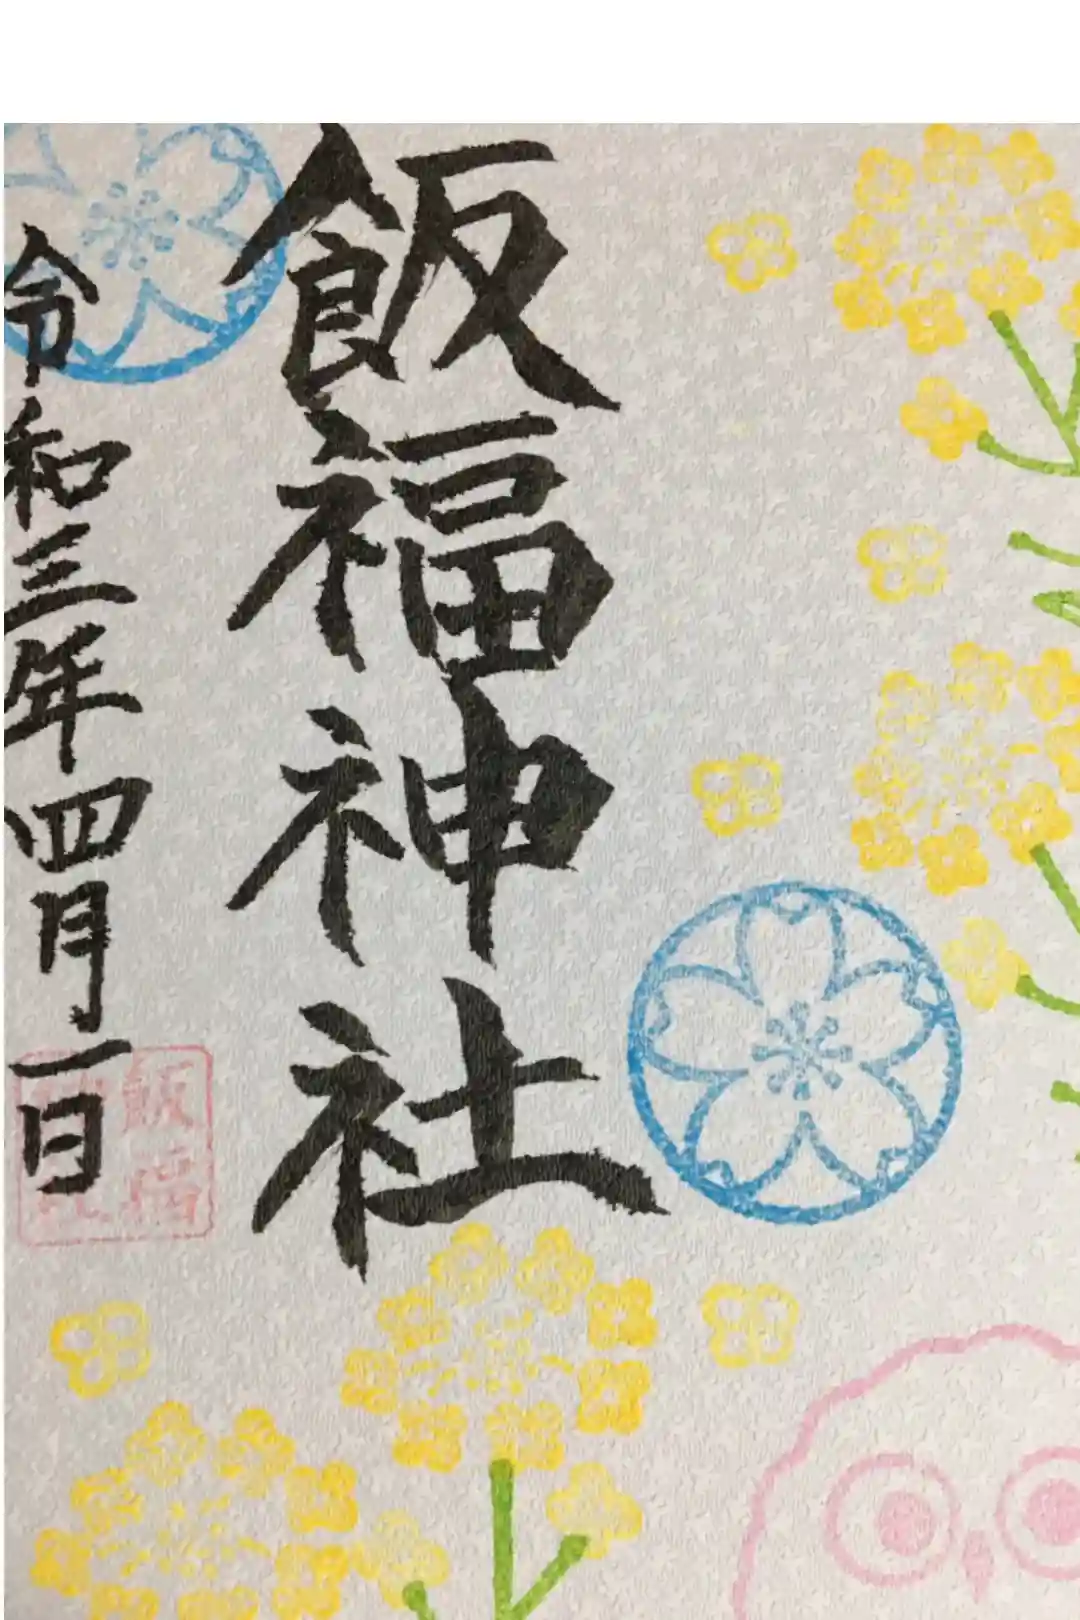 飯福神社
令和三年四月一日
飯福